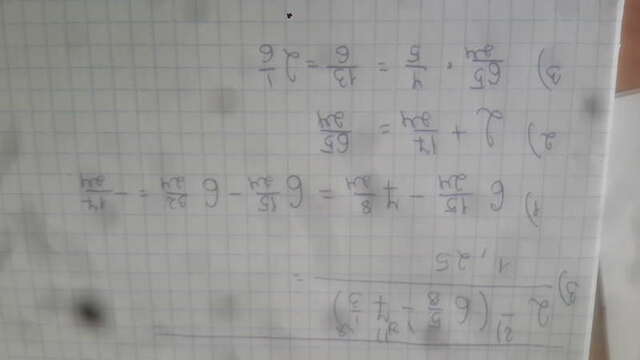 3) 2 - (6 5/8 - 7 1/3)
1,25 =
1) 6 15/24 - 7 8/24 = 6 15/24 - 6 32/24 = - 17/24
2) 2 + 17/24 = 65/24
3) 65/24 · 4/5 = 13/6 = 2 1/6